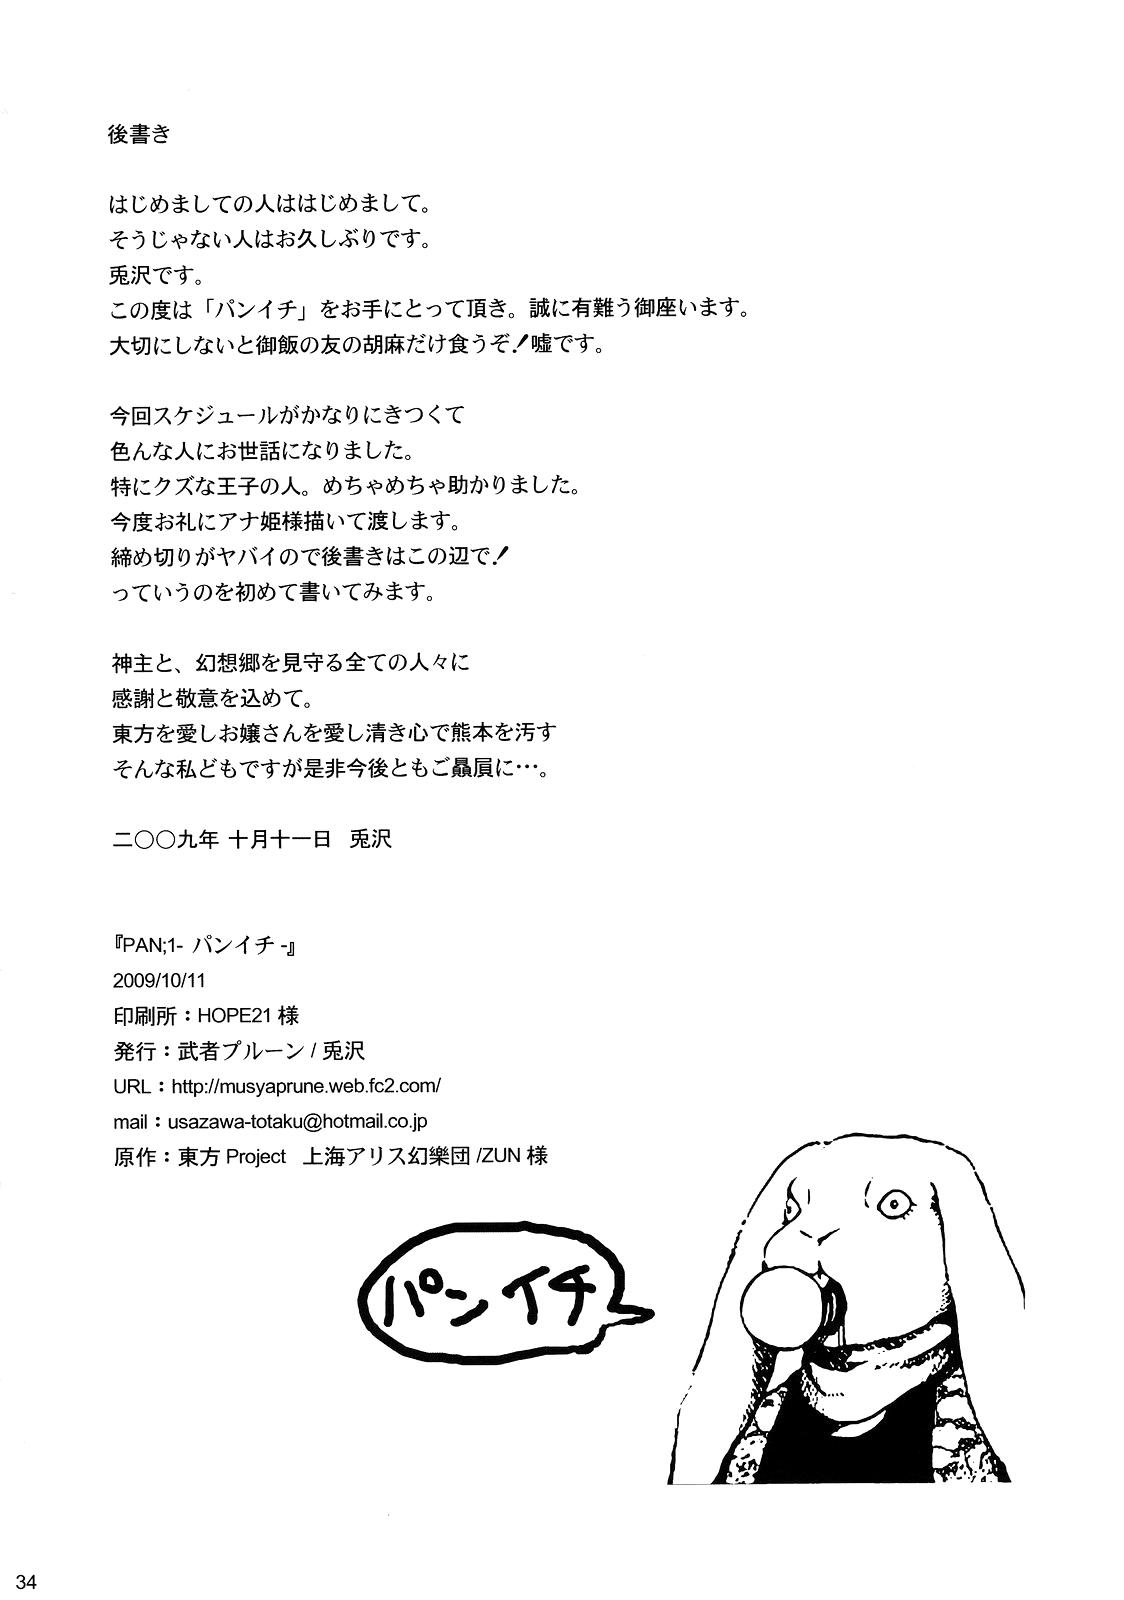 後書き
はじめましての人ははじめまして。
そうじゃない人はお久しぶりです。
兎沢です。
この度は「パンイチ」をお手にとって頂き。誠に有難う御座います。
大切にしないと御飯の友の胡麻だけ食うぞ！嘘です。
今回スケジュールがかなりにきつくて
色んな人にお世話になりました。
特にクズな王子の人。めちゃめちゃ助かりました。
今度お礼にアナ姫様描いて渡します。
締め切りがヤバイので後書きはこの辺で！
っていうのを初めて書いてみます。
神主と、幻想郷を見守る全ての人々に
感謝と敬意を込めて。
東方を愛しお嬢さんを愛し清き心で熊本を汚す
そんな私どもですが是非今後ともご贔屓に…。
二〇〇九年 十月十一日 兎沢
『PAN;1- パンイチ -』
2009/10/11
印刷所：HOPE21 様
発行：武者プルーン / 兎沢
URL：http://musyaprune.web.fc2.com/
mail：usazawa-totaku@hotmail.co.jp
原作：東方 Project 上海アリス幻樂団 /ZUN 様
パンイチ
34